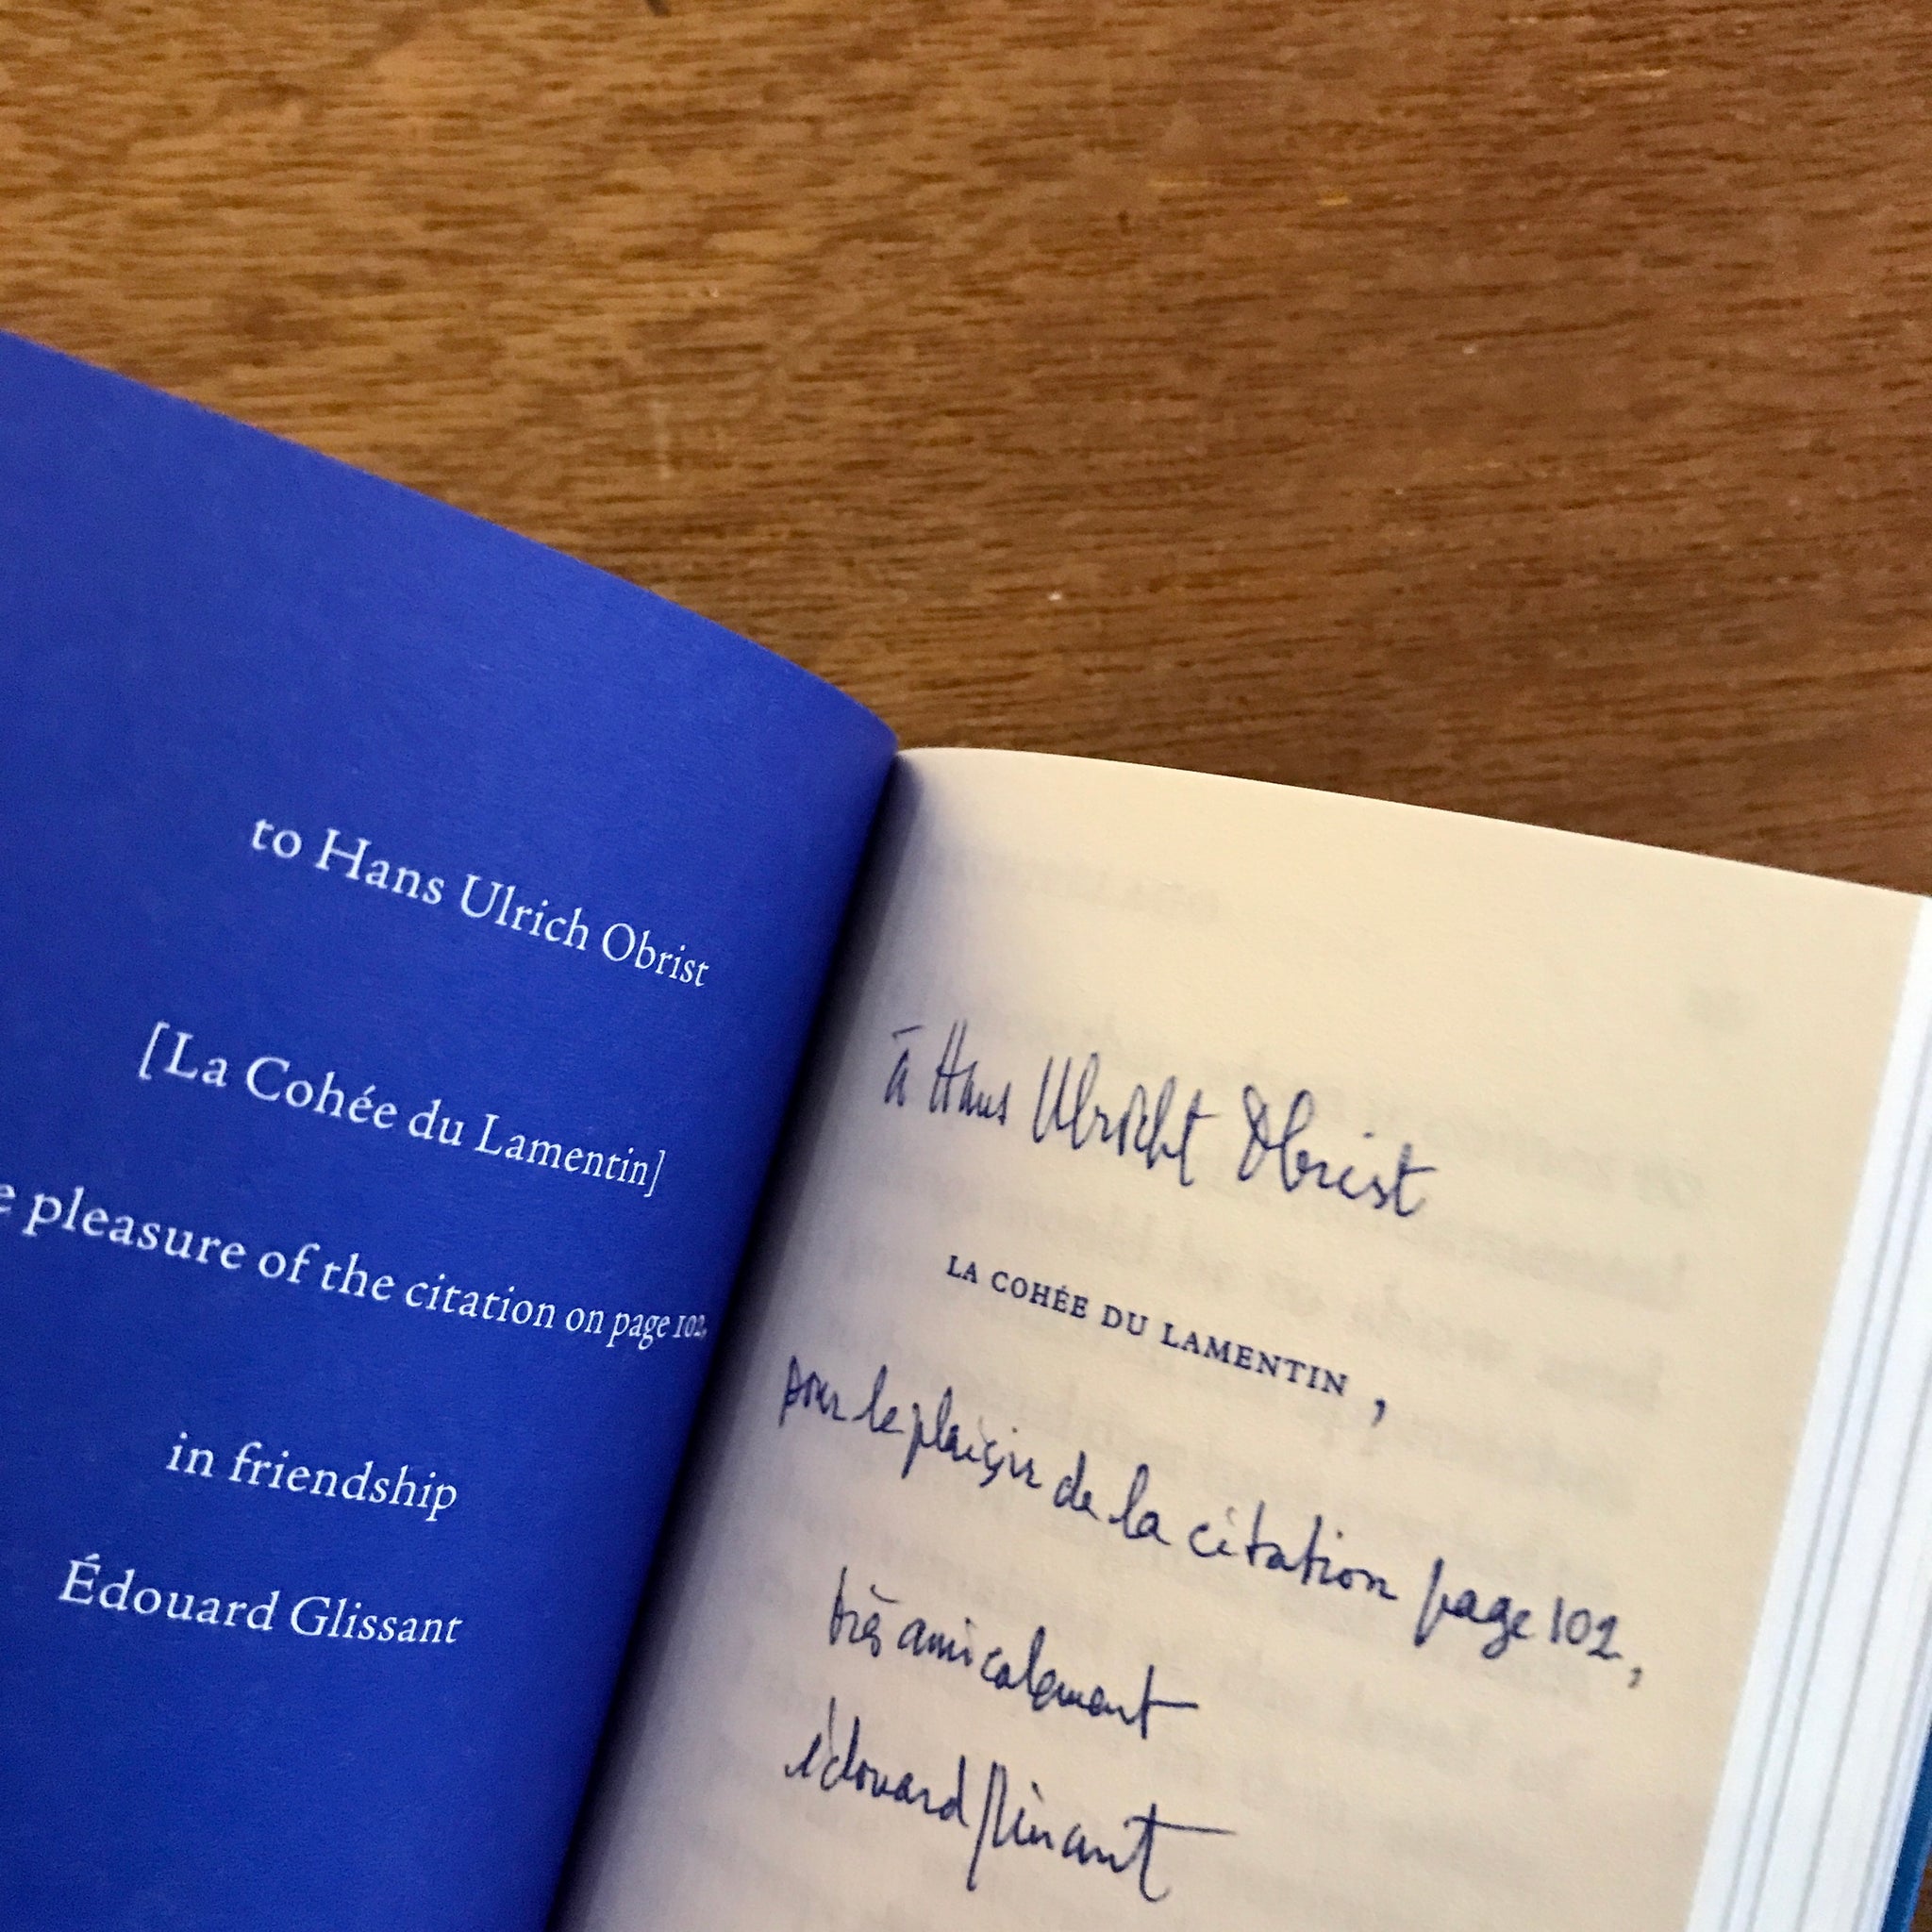 to Hans Ulrich Obrist
[La Cohée du Lamentin]
pleasure of the citation on page 102,
in friendship
Édouard Glissant
à Hans Ulricht Obrist
LA COHÉE DU LAMENTIN ,
pour le plaisir de la citation page 102,
très amicalement
édouard glissant